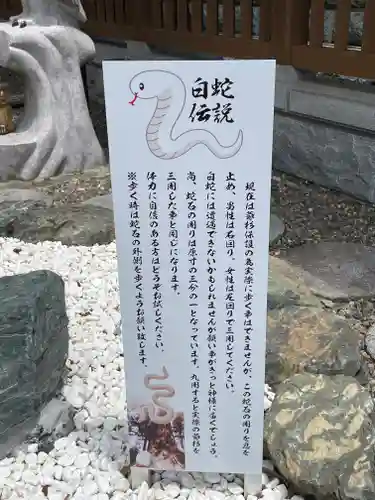 白蛇
伝説
現在は爺杉保護の為実際に歩く事はできませんが、この蛇石の周りを息を
止め、男性は右回り、女性は左回りで三周してください。
白蛇には遭遇できないかもしれませんが願い事がきっと神様に届くでしょう。
尚、蛇石の周りは原寸の三分の一となっています。九周すると実際の爺杉を
三周した事と同じになります。
体力に自信のある方はどうぞお試しください。
※歩く時は蛇石の外側を歩くようお願い致します。